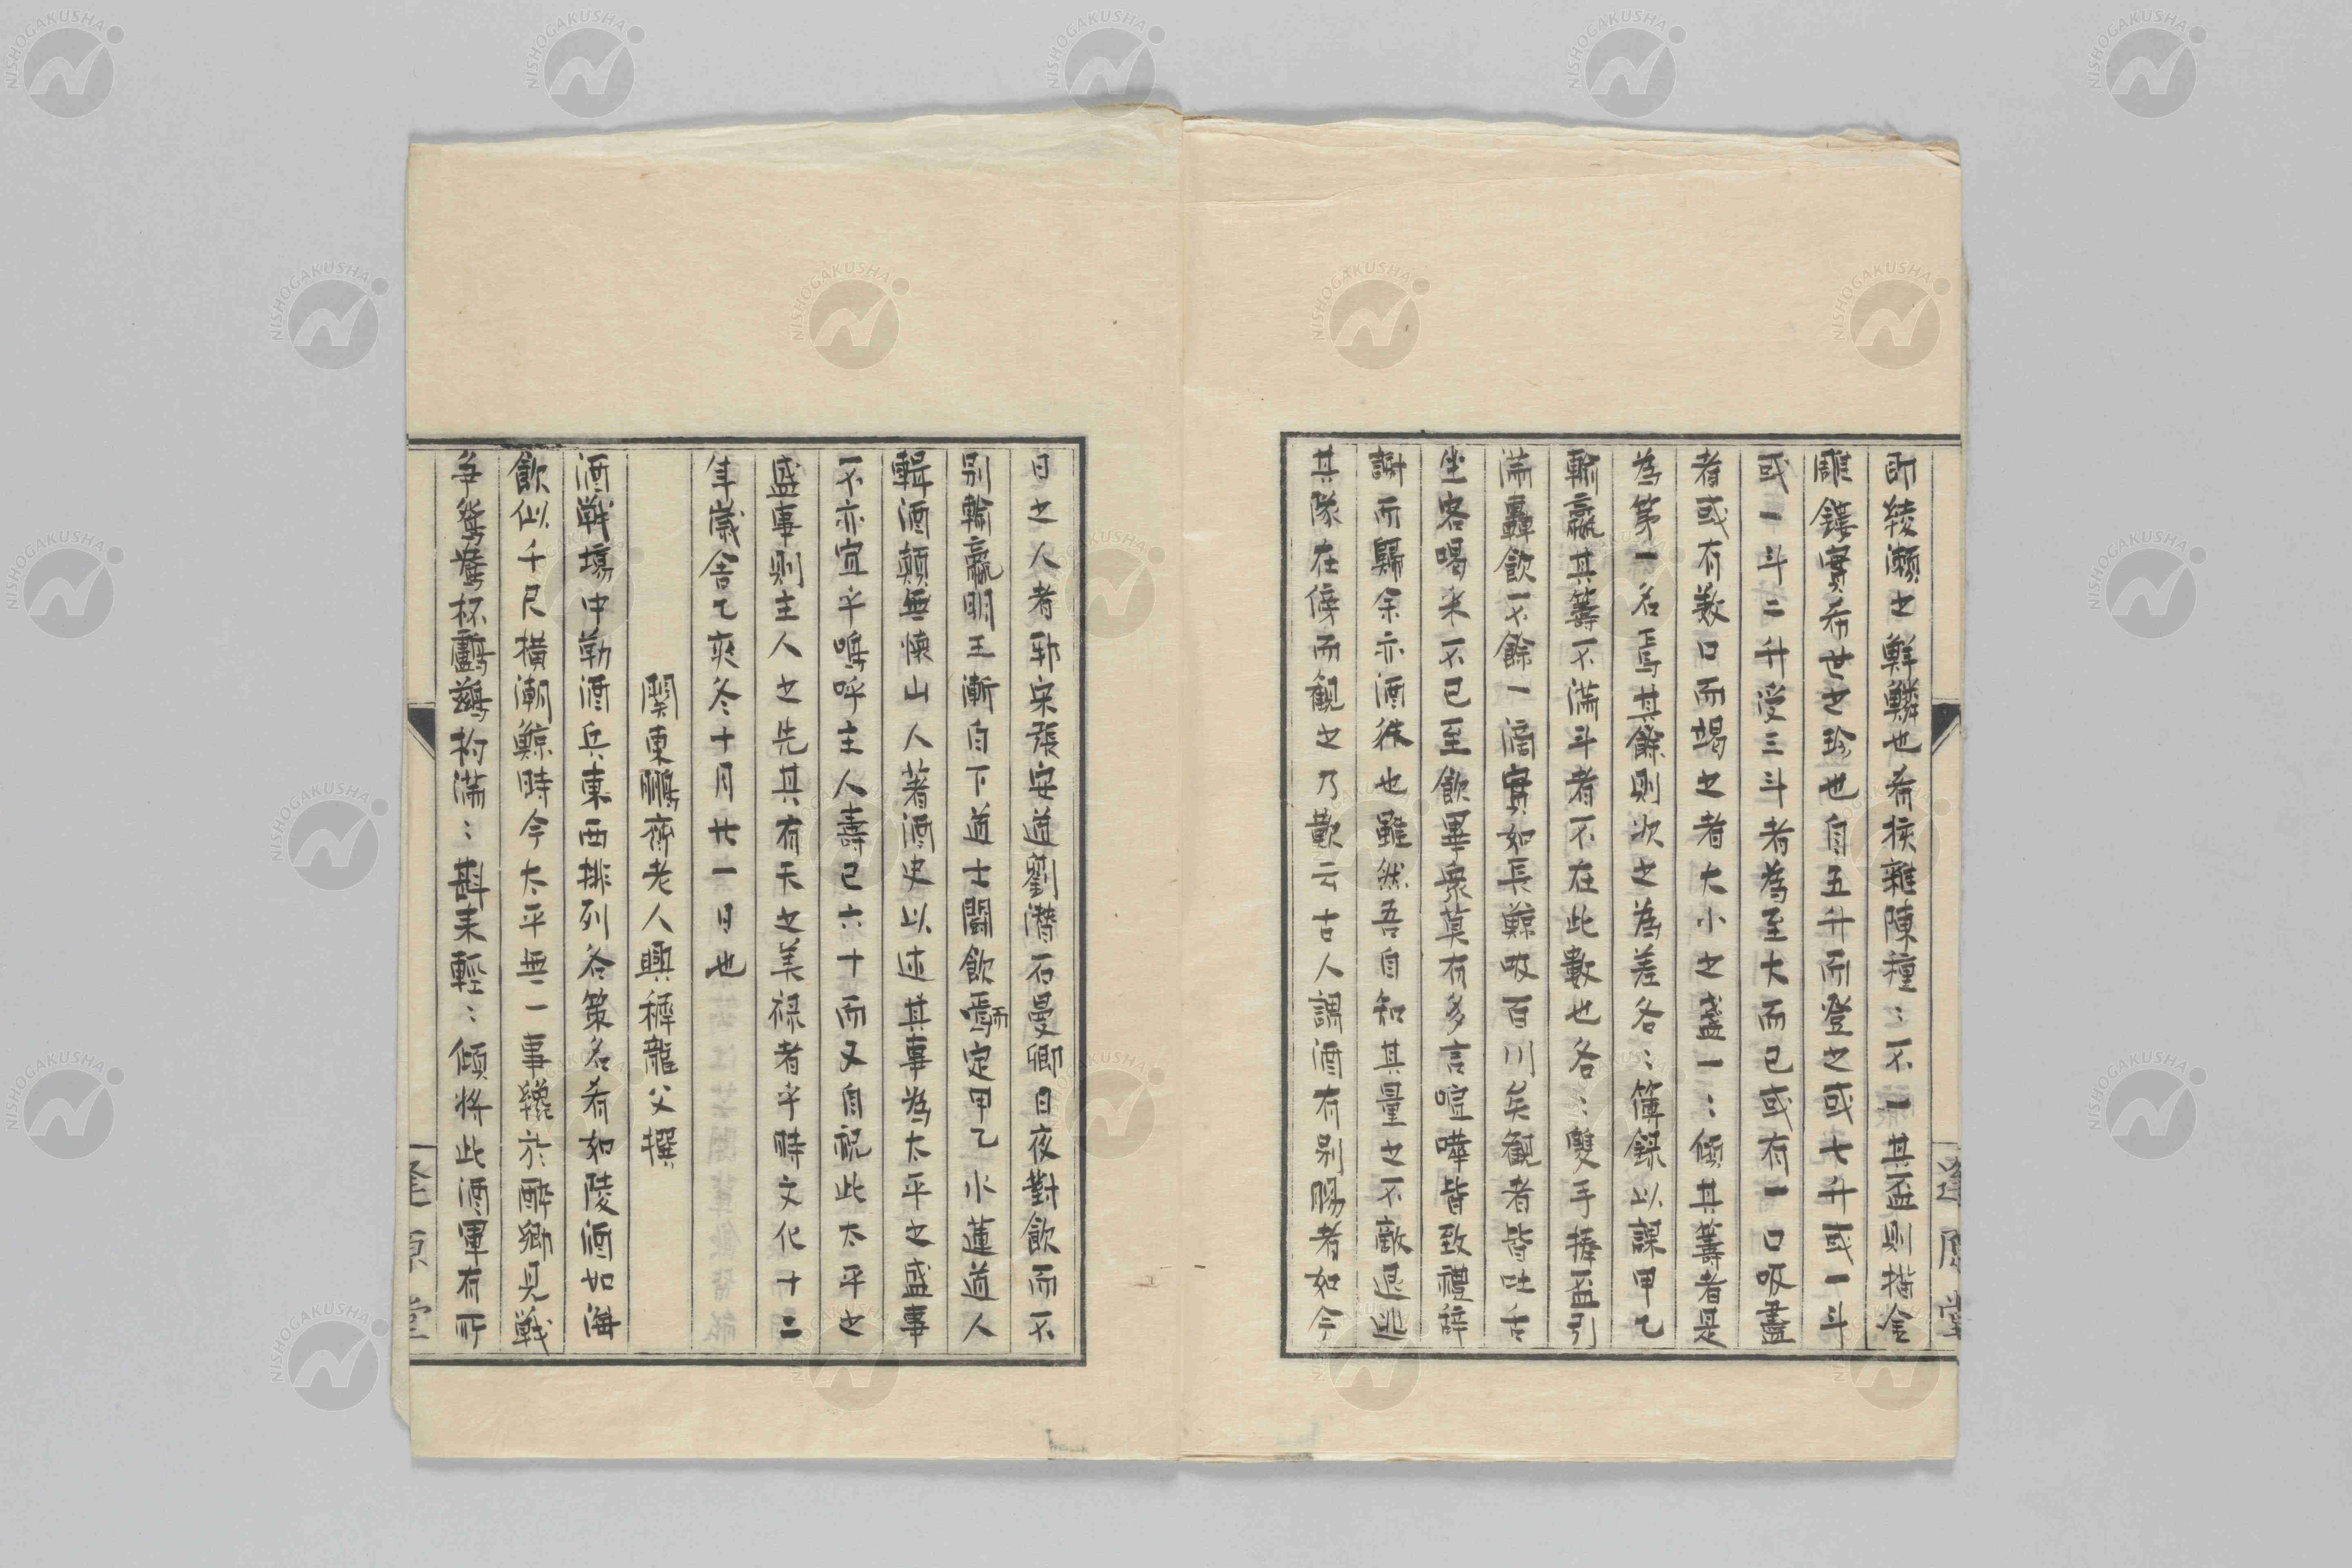 即綾瀬之鮮鱗也希挨雜陳種〻不一其盃則描金
雕鏤實希世之珍也自五升而登之或七升或一斗
或一斗二升受三斗者為至大而已或有一口吸盡
者或有数口而竭之者大小之盞一〻傾其籌者是
為第一名焉其餘則次之為差各〻簿録以謀甲乙
輸嬴其籌不滿斗者不在此數也各〻雙手捧盃引
滿轟飲不餘一滴實如長鯨吸百川矣観者皆吐舌
坐客喝米不已至飲畢衆莫有多言喧嘩皆致禮辞
謝而歸余亦酒徒也雖然吾自知其量之不敵退逃
其隊在傍而観之乃歎云古人謂酒有别膓者如今
日之人者耶宋張安道劉潜石曼卿日夜對飲而不
别輸嬴明王漸自下道士鬪飲而焉定甲乙水蓮道人
輯酒顛無懐山人著酒史以述其事為太平之盛事
不亦宜乎嗚呼主人壽已六十而又自祝此太平之
盛事則主人之先其有天之美禄者乎時文化十二
年歳舎乙亥冬十月廿一日也
関東鵬齋老人興穉龍父撰
酒戦塲中勒酒兵東西排列各策名肴如陵酒如海
飲似千尺横潮鯨時今太平無一事独於酔郷見戦
争鴛鴦杯鸕鷀杓滿〻斟来輕〻傾将此酒軍有所
逢原堂
逢原堂
NISHOGAKUSHA